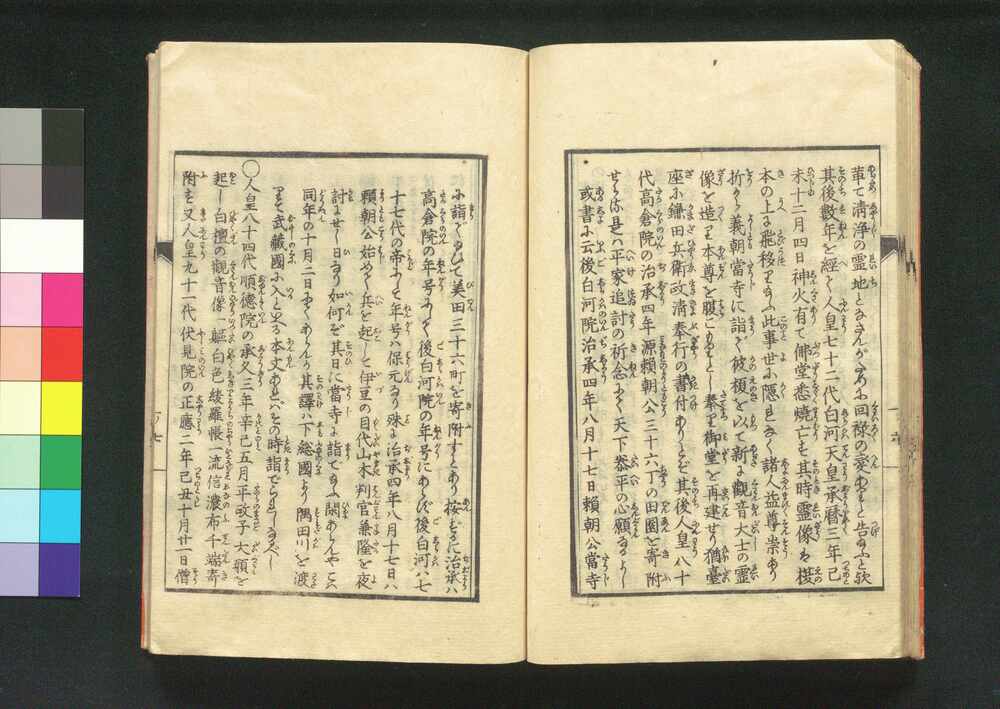 葺て清浄の霊地となさんがために回禄の変あらんと告給ふと欤
其後数年を経て人皇七十二代白河天皇承暦三年己
未十二月四日神火有て佛堂悉焼亡す其時霊像ハ榎
本の上に飛移り給ふ此事世に隠れなく諸人益尊崇あり
折から義朝當寺に詣で彼榎を以て新に觀音大士の霊
像を造り本尊を腹ごもりとし奉り御堂を再建せり猶臺
座に鎌田兵衛政清奉行の書付ありとぞ其後人皇八十
代高倉院の治承四年源頼朝公三十六丁の田園を寄附
せらる是ハ平家追討の祈念にて天下泰平の心願なるよし
或書に云後白河院治承四年八月十七日頼朝公當寺
に詣で給ひて美田三十六町を寄附すとあり按ずるに治承ハ
高倉院の年号にて後白河院の年号にあらず後白河ハ七
十七代の帝にして年号ハ保元なり殊に治承四年八月十七日ハ
頼朝公始めて兵を起して伊豆の目代山木判官兼隆を夜
討にせし日なり如何ぞ其日に當寺に詣で給ふ間あらんやこハ
同年の十月二日なるべし其譯ハ下総國より隅田川を渡
りて武蔵國に入しよる本文あればその時詣でられしなるべし
〇人皇八十四代順徳院の承久三年辛巳五月平政子大願を
起し白檀の觀音像一軀白色綾羅帳一流信濃布千端寄
附す又人皇九十一代伏見院の正應二年己丑十月廿一日僧